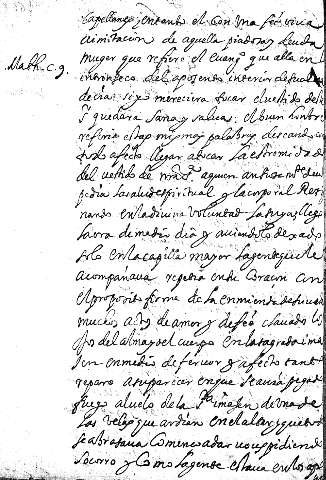 capellanes, entanto el con una fe viva
a imitacion de aquella piadosa y deuota
Math. c. 9.
muger que refiere el euang.º que alla en lo
intrinseco del aposento interior de su alma
decia: si yo mereciera tocar el vestido de
quedara sana y salua. el buen hombre
refiria estas mismas palabras deseando con
todo afecto llegar a tocar la extremidad
del vestido de nro S.r a quien
pedia la salud espiritual y la corporal
nando en la divina voluntad. La
la ora de medio dia y auiendolo dexado
solo en la capilla mayor la gente que le
acompañaua repetia en su coraçon con
el proposito firme de la enmienda de su vida
muchos actos de amor y de fee clauados los
ojos del alma y del cuerpo en la sagrada ima
gen en medio de feruor y afecto tanto
reparo a su parecer en que se auia pegado
fuego al uelo de la S.ta imagen de una de
las velas que ardian en el altar, y que
se abrasaua començo a dar voces pidiendo
socorro y como la gente estaua en los